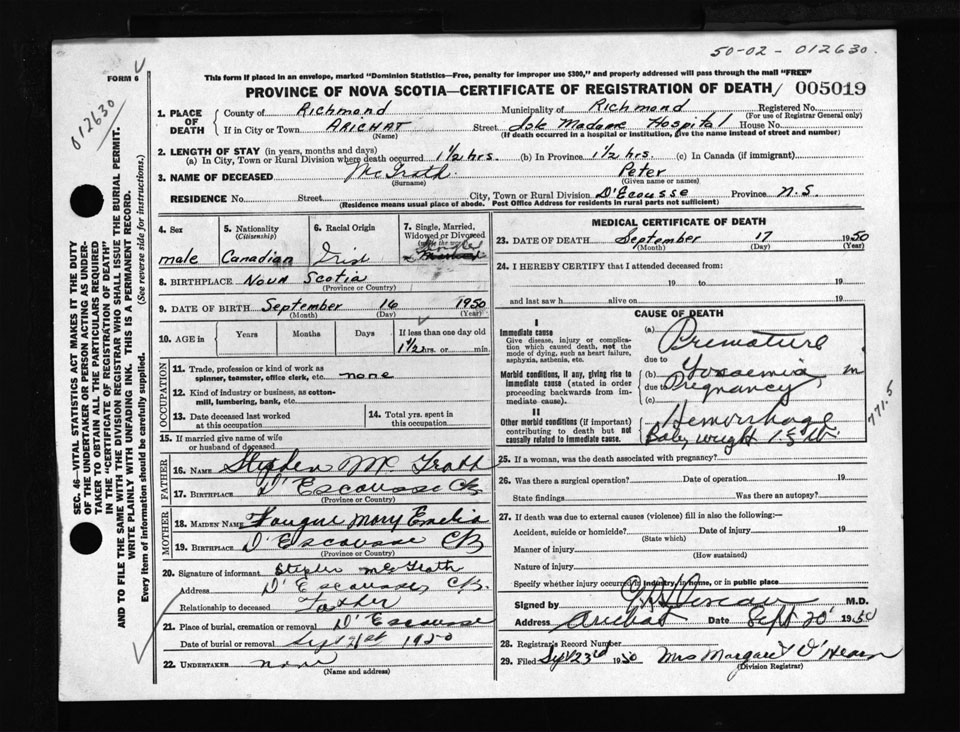 50-02-012630.
FORM 6
012630
This form if placed in an envelope, marked "Dominion Statistics—Free, penalty for improper use $300," and properly addressed will pass through the mail "FREE"
PROVINCE OF NOVA SCOTIA—CERTIFICATE OF REGISTRATION OF DEATH 005019
SEC. 46—VITAL STATISTICS ACT MAKES IT THE DUTY
OF THE UNDERTAKER OR PERSON ACTING AS UNDER-
TAKER TO OBTAIN ALL THE PARTICULARS REQUIRED
IN THE "CERTIFICATE OF REGISTRATION OF DEATH"
AND TO FILE THE SAME WITH THE DIVISION REGISTRAR WHO SHALL ISSUE THE BURIAL PERMIT.
WRITE PLAINLY WITH UNFADING INK. THIS IS A PERMANENT RECORD.
Every item of information should be carefully supplied. (See reverse side for instructions.)
1. PLACE OF DEATH
County of Richmond Municipality of Richmond Registered No.
(For use of Registrar General only)
If in City or Town ARICHAT Street Isle Madame Hospital House No.
(Name) (If death occurred in a hospital or institution, give the name instead of street and number)
2. LENGTH OF STAY (in years, months and days)
(a) In City, Town or Rural Division where death occurred 1½ hrs. (b) In Province 1½ hrs. (c) In Canada (if immigrant)
3. NAME OF DECEASED McGrath Peter
(Surname) (Given name or names)
RESIDENCE No. Street City, Town or Rural Division D'Ecousse Province N.S.
(Residence means usual place of abode. Post Office Address for residents in rural parts not sufficient)
4. Sex
male
5. Nationality
(Citizenship)
Canadian
6. Racial Origin
Irish
7. Single, Married,
Widowed or Divorced
(write the word)
Single
8. BIRTHPLACE Nova Scotia
(Province or Country)
9. DATE OF BIRTH September 16 1950
(Month) (Day) (Year)
10. AGE in Years Months Days If less than one day old
1½ hrs. or min.
OCCUPATION
11. Trade, profession or kind of work as
spinner, teamster, office clerk, etc. none
12. Kind of industry or business, as cotton-
mill, lumbering, bank, etc.
13. Date deceased last worked
at this occupation
14. Total yrs. spent in
this occupation
15. If married give name of wife
or husband of deceased
FATHER
16. NAME Stephen McGrath
17. BIRTHPLACE D'Escousse CB
(Province or Country)
MOTHER
18. MAIDEN NAME Fougere Mary Emelia
19. BIRTHPLACE D'Escousse CB
(Province or Country)
20. Signature of informant Stephen McGrath
Address D'Escousse CB.
Relationship to deceased Father
21. Place of burial, cremation or removal D'Escousse
Date of burial or removal Sept 21st 1950
22. UNDERTAKER none
(Name and address)
MEDICAL CERTIFICATE OF DEATH
23. DATE OF DEATH September 17 1950
(Month) (Day) (Year)
24. I HEREBY CERTIFY that I attended deceased from:
19 to 19
and last saw h alive on 19
CAUSE OF DEATH
I
Immediate cause
Give disease, injury or complica-
tion which caused death, not the
mode of dying, such as heart failure,
asphyxia, asthenia, etc.
(a) Premature
due to
Morbid conditions, if any, giving rise to
immediate cause (stated in order
proceeding backwards from im-
mediate cause).
(b) Toxaemia in
due to Pregnancy
(c)
II
Other morbid conditions (if important)
contributing to death but not
causally related to immediate cause.
Hemorrhage
Baby weight
771.5
25. If a woman, was the death associated with pregnancy?
26. Was there a surgical operation? Date of operation 19
State findings Was there an autopsy?
27. If death was due to external causes (violence) fill in also the following:—
Accident, suicide or homicide? Date of injury 19
(State which)
Manner of injury
(How sustained)
Nature of injury
Specify whether injury occurred in industry, in home, or in public place
Signed by M.D.
Address Arichat Date Sept 20 1950
28. Registrar's Record Number
29. Filed Sept 23rd 1950 Mrs Margaret D'Hearn
(Division Registrar)